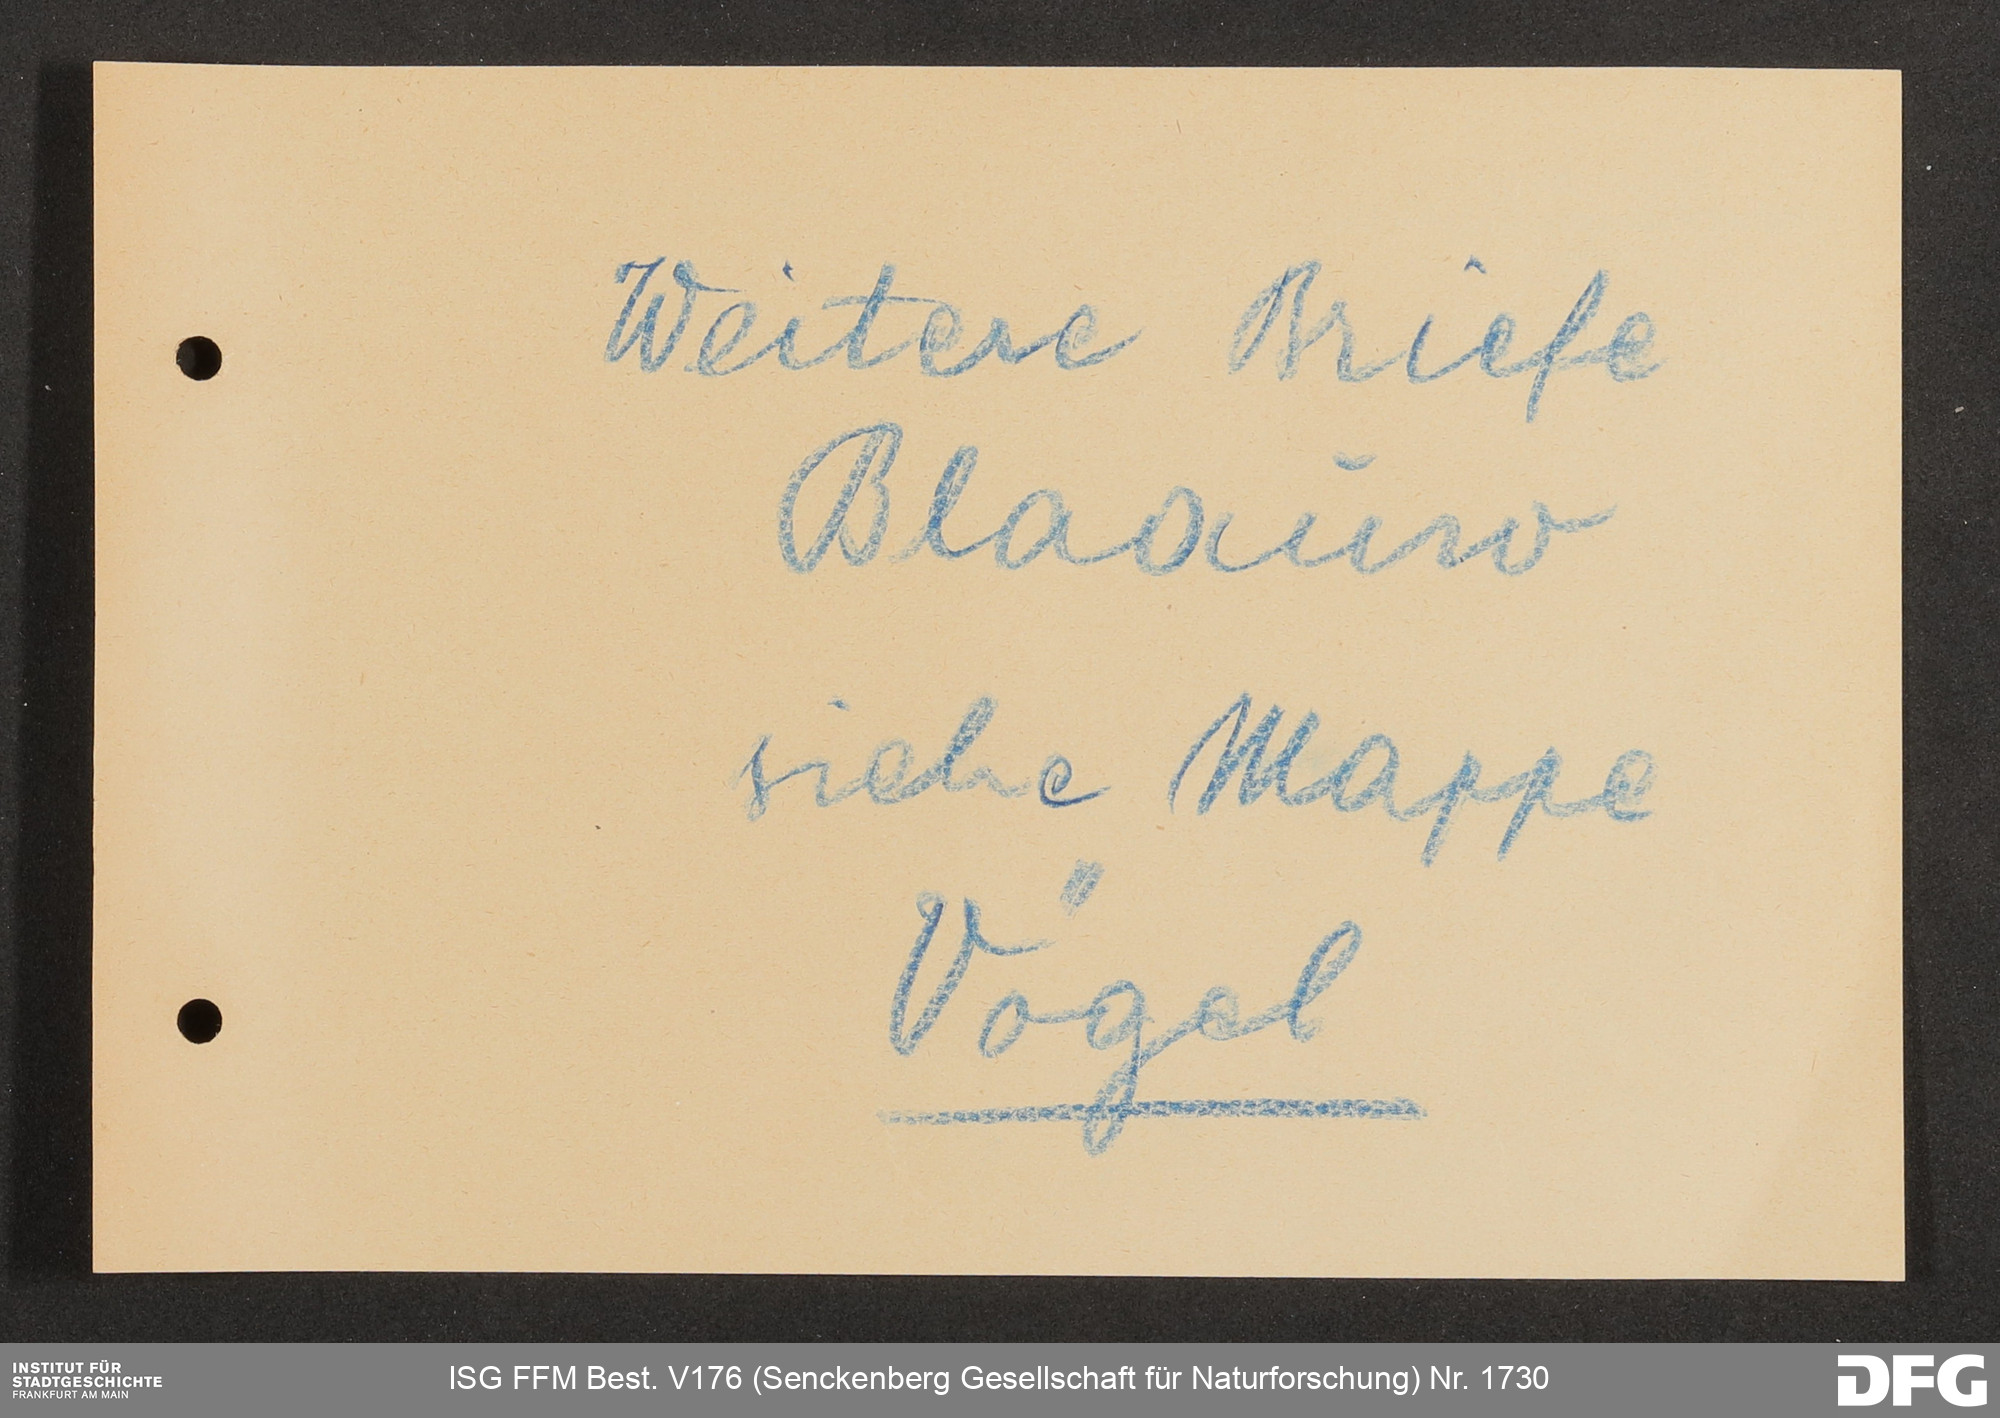 Weitere Briefe
Blaauw
siehe Mappe
Vögel
INSTITUT FÜR
STADTGESCHICHTE
FRANKFURT AM MAIN
ISG FFM Best. V176 (Senckenberg Gesellschaft für Naturforschung) Nr. 1730
DFG